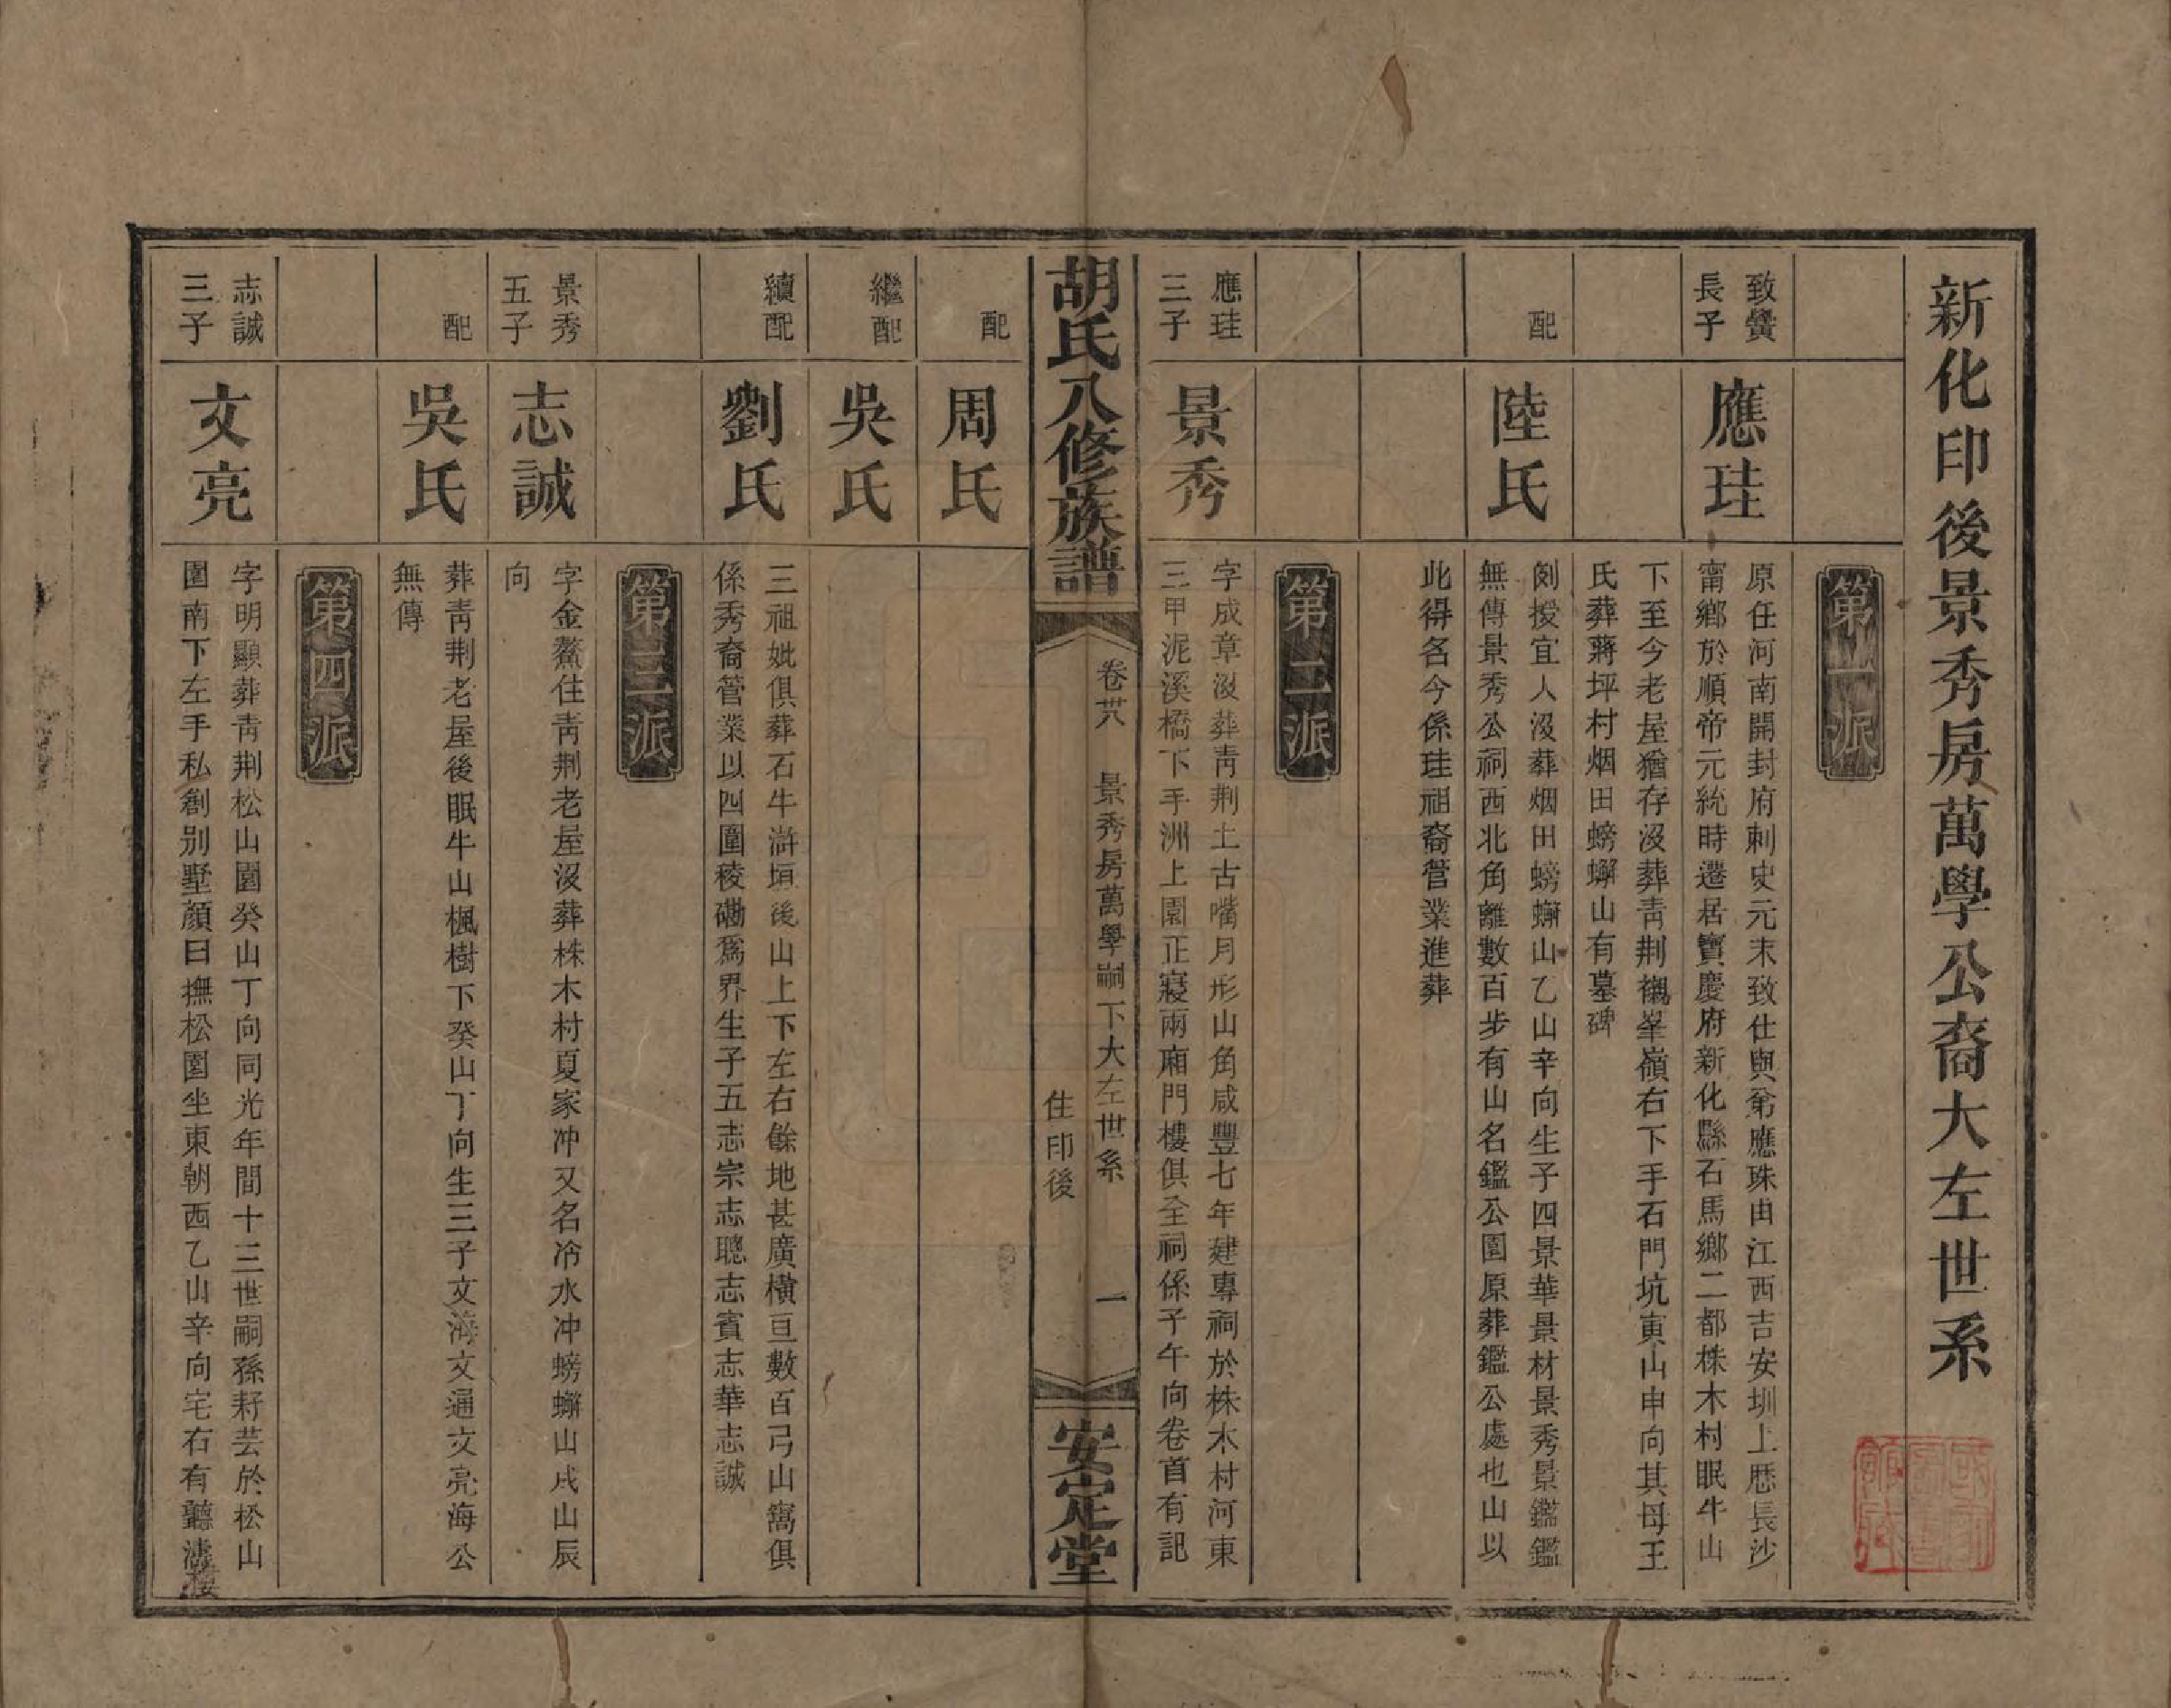 新化印後景秀房萬學公裔大左世系
第一派
致黌
長子
應珪
原任河南開封府刺史元末致仕與弟應珠由江西吉安圳上歷長沙
甯鄉於順帝元統時遷居寶慶府新化縣石馬鄉二都株木村眠牛山
下至今老屋猶存沒葬青荆峯嶺右下手石門坑寅山申向其母王
氏葬蔣坪村烟田螃蠏山有墓碑
配
陸氏
例授宜人沒葬烟田螃蠏山乙山辛向生子四景華景材景秀景鑑鑑
無傳景秀公祠西北角離數百步有山名鑑公園原葬鑑公處也山以
此得名今係珪祖裔管業進葬
第二派
應珪
三子
景秀
字成章沒葬青荆土古嘴月形山角咸豐七年建專祠於株木村河東
三甲泥溪橋下手洲上園正寢兩廂門樓俱全祠係子午向卷首有記
胡氏八修族譜
卷卅八
景秀房萬學嗣下大左世系
住印後
一
安定堂
配
周氏
繼配
吳氏
續配
劉氏
三祖妣俱葬石牛滸垣後山上下左右餘地甚廣橫亘數百弓山窩俱
係秀裔管業以四圍稜磡為界生子五志宗志聰志賓志華志誠
第三派
景秀
五子
志誠
字金鰲住青荆老屋沒葬株木村夏家冲又名冷水冲螃蠏山戌山辰
向
配
吳氏
葬青荆老屋後眠牛山楓樹下癸山丁向生三子文海文通文亮海公
無傳
第四派
志誠
三子
文亮
字明顯葬青荆松山園癸山丁向同光年間十三世嗣孫耔芸於松山
園南下左手私創別墅顏曰撫松園坐東朝西乙山辛向宅右有聽濤樓